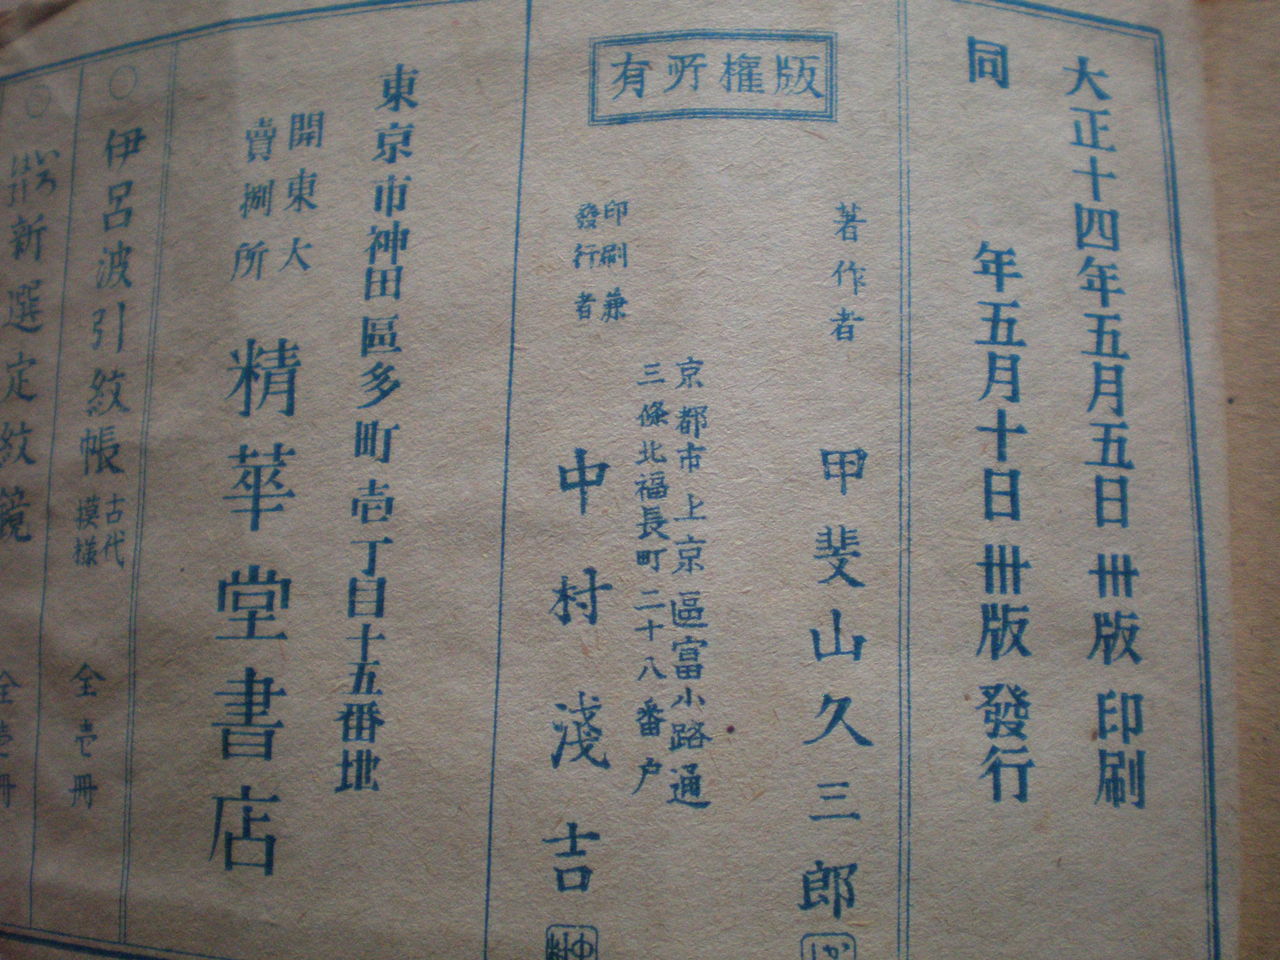 大正十四年五月五日 卅版 印刷
同 年五月十日 卅版 發行
版權所有
著作者
甲斐山久三郎
京都市上京區富小路通
三條北福長町二十八番戸
印刷兼
發行者
中村淺吉
中村
東京市神田區多町壱丁目十五番地
開東大
賣捌所
精華堂書店
○伊呂波引紋帳 古代模様 全壱冊
○いろは引新選定紋鏡 全壱冊